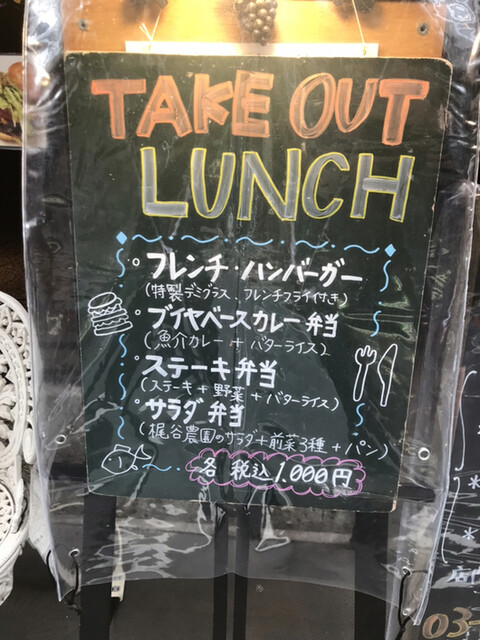 TAKE OUT
LUNCH
フレンチ・ハンバーガー
(特製デミグラス、フレンチフライ付き)
ブイヤベースカレー弁当
(魚介カレー+バターライス)
ステーキ弁当
(ステーキ+野菜+バターライス)
サラダ弁当
(梶谷農園のサラダ+前菜3種+パン)
各 税込1.000円
*
*
03-